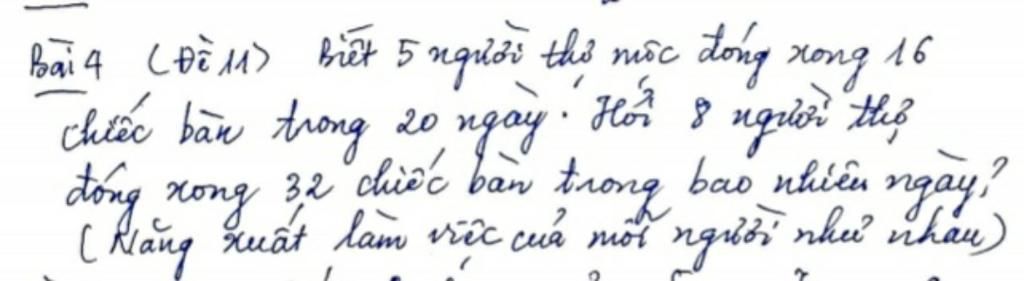 Bài 4 (Đề 11) Biết 5 người thợ mộc đóng xong 16
chiếc bàn trong 20 ngày. Hỏi 8 người thợ
đóng xong 32 chiếc bàn trong bao nhiêu ngày?
(Năng xuất làm việc của mỗi người như nhau)